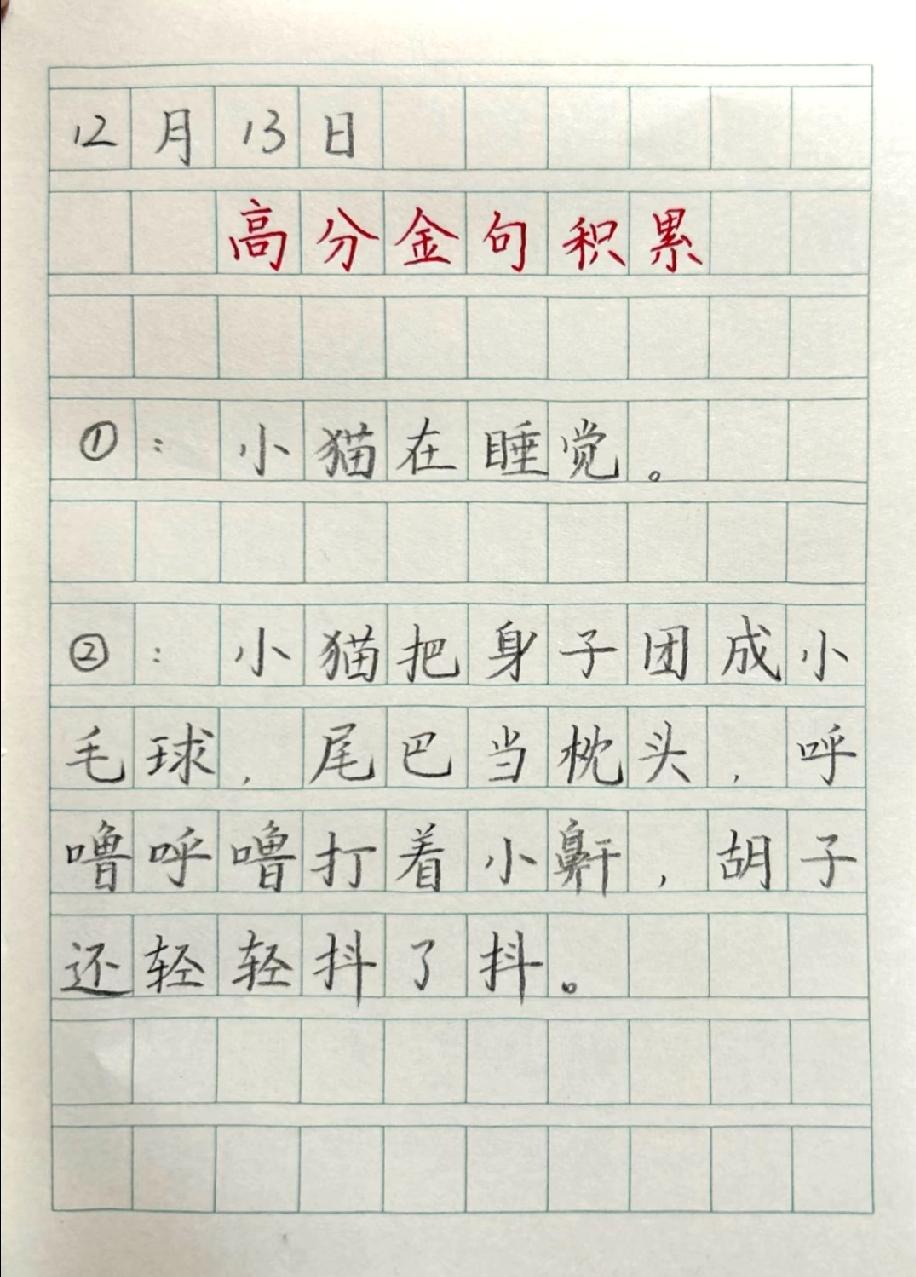 12月13日
高分金句积累
①：小猫在睡觉。
②：小猫把身子团成小
毛球，尾巴当枕头，呼
噜呼噜打着小鼾，胡子
还轻轻抖了抖。